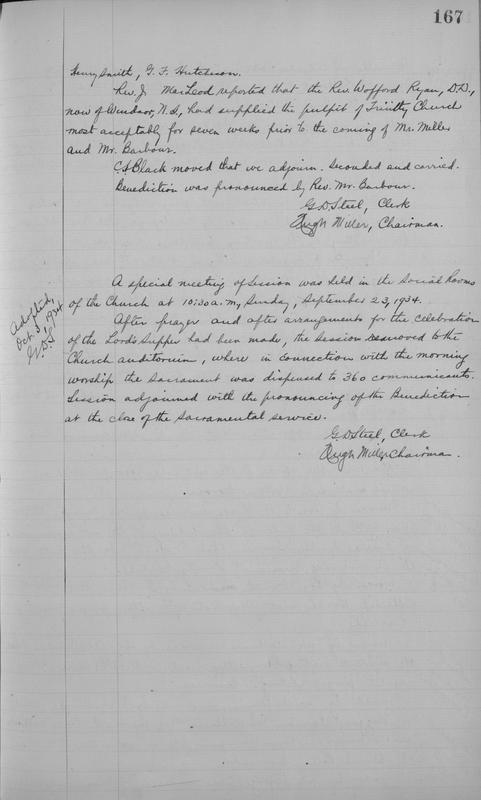 167
Henry Smith, G. F. Hutcheson.
Rev. J. MacLeod reported that the Rev. Wofford Ryan, D.D.,
now of Windsor, N.S., had supplied the pulpit of Trinity Church
most acceptably for seven weeks prior to the coming of Mr. Miller
and Mr. Barbour.
Black moved that we adjourn. Seconded and carried.
Benediction was pronounced by Rev. Mr. Barbour.
G. D. Steel, Clerk
Hugh Miller, Chairman.
Adopted,
Oct. 3, 1934
G.D.S
A special meeting of Session was held in the Social Rooms
of the Church at 10:30 a.m., Sunday, September 23, 1934.
After prayer and after arrangements for the celebration
of the Lord's Supper had been made, the Session removed to the
Church auditorium, where in connection with the morning
worship the Sacrament was dispensed to 360 communicants.
Session adjourned with the pronouncing of the Benediction
at the close of the Sacramental service.
G. D. Steel, Clerk
Hugh Miller, Chairman.